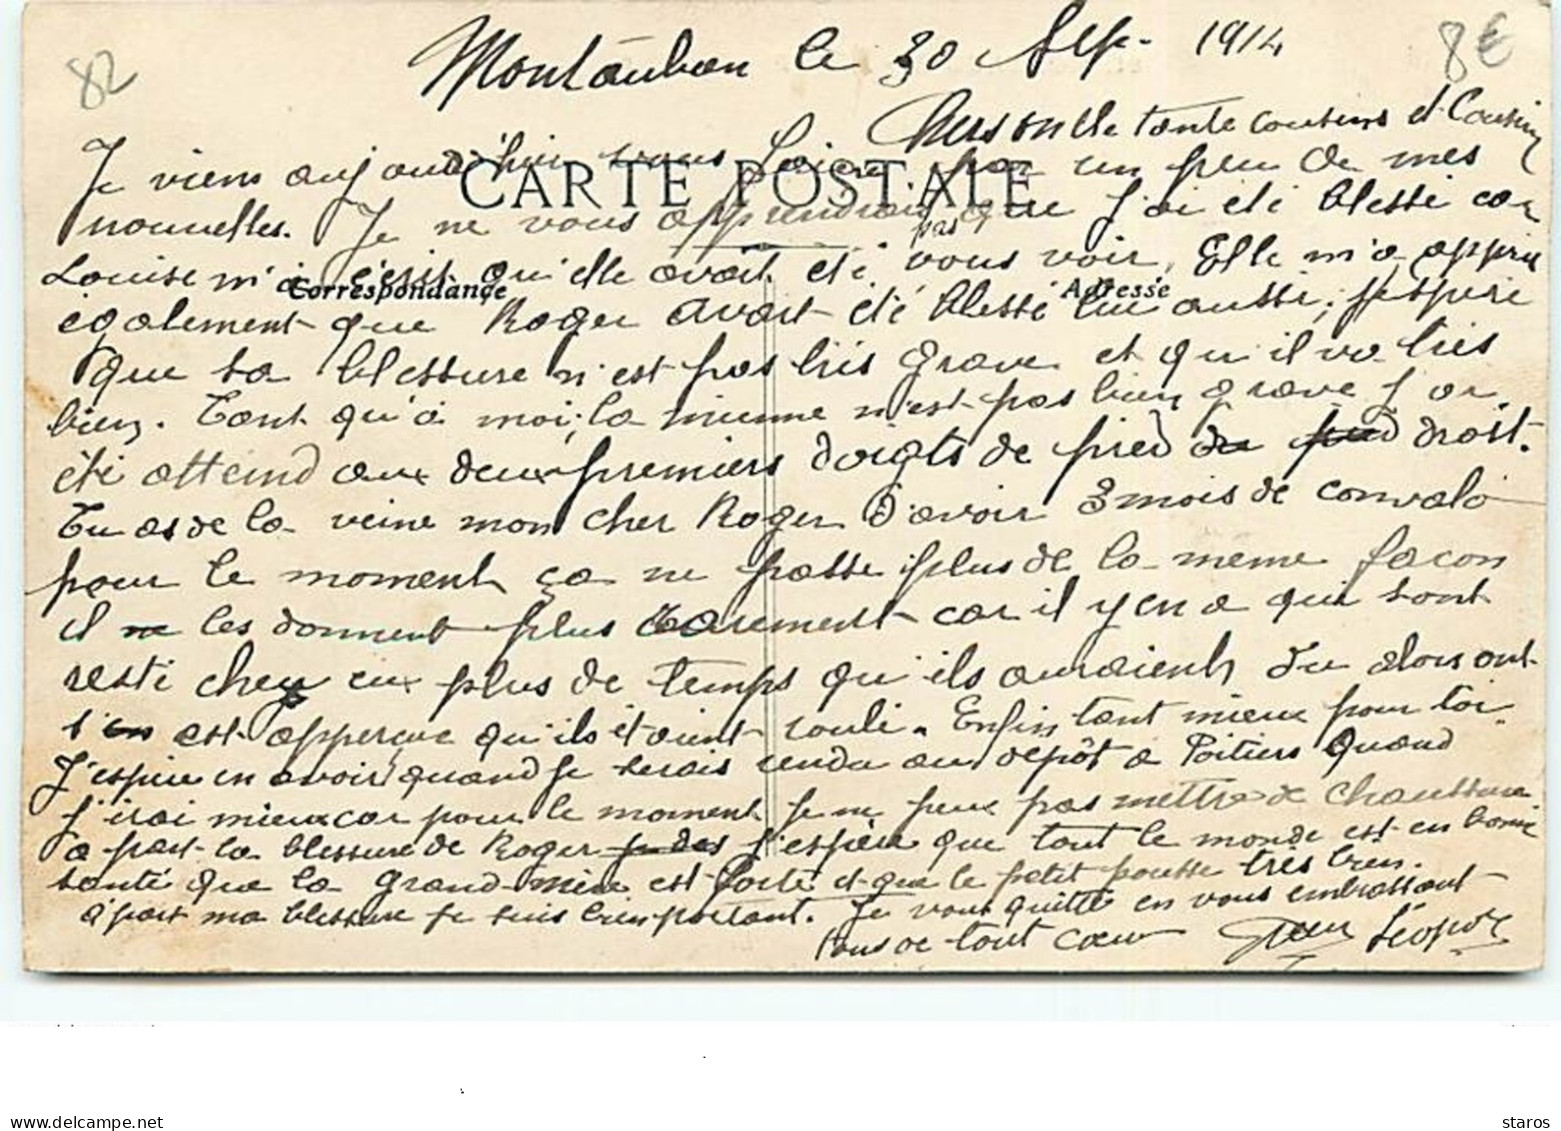 82
8€
Montauban le 30 Sep. 1914
Chers oncle tante cousins et Cousines
CARTE POSTALE
Je viens aujourd'hui vous faire par un peu de mes
nouvelles. Je ne vous apprendrai pas que j'ai été blessé car
Correspondance
Adresse
Louise m'a écrit qu'elle avait été vous voir. Elle m'a appris
également que Roger avait été blessé lui aussi, j'espère
que sa blessure n'est pas très grave et qu'il va très
bien. Tant qu'à moi, la mienne n'est pas bien grave j'ai
été atteind aux deux premiers doigts de pied du pied droit.
Tu as de la veine mon cher Roger d'avoir 3 mois de convalo
pour le moment ça ne passe plus de la meme facon
il ne les donnent plus rarement car il y en a qui sont
resté chez eux plus de temps qu'ils auraient du alors ont
s'en est apperçue qu'ils étaient roulé. Enfin tant mieux pour toi
J'espère en avoir quand je serais rendu au depôt a Poitiers quand
j'irai mieux car pour le moment je ne peux pas mettre de chaussure
a part la blessure de Roger j'espère que tout le monde est en bonne
santé que la grand-mère est forte et que le petit pousse très bien.
a part ma blessure je suis bien portant. Je vous quitte en vous embrassant
tous de tout cœur Léopold
staros